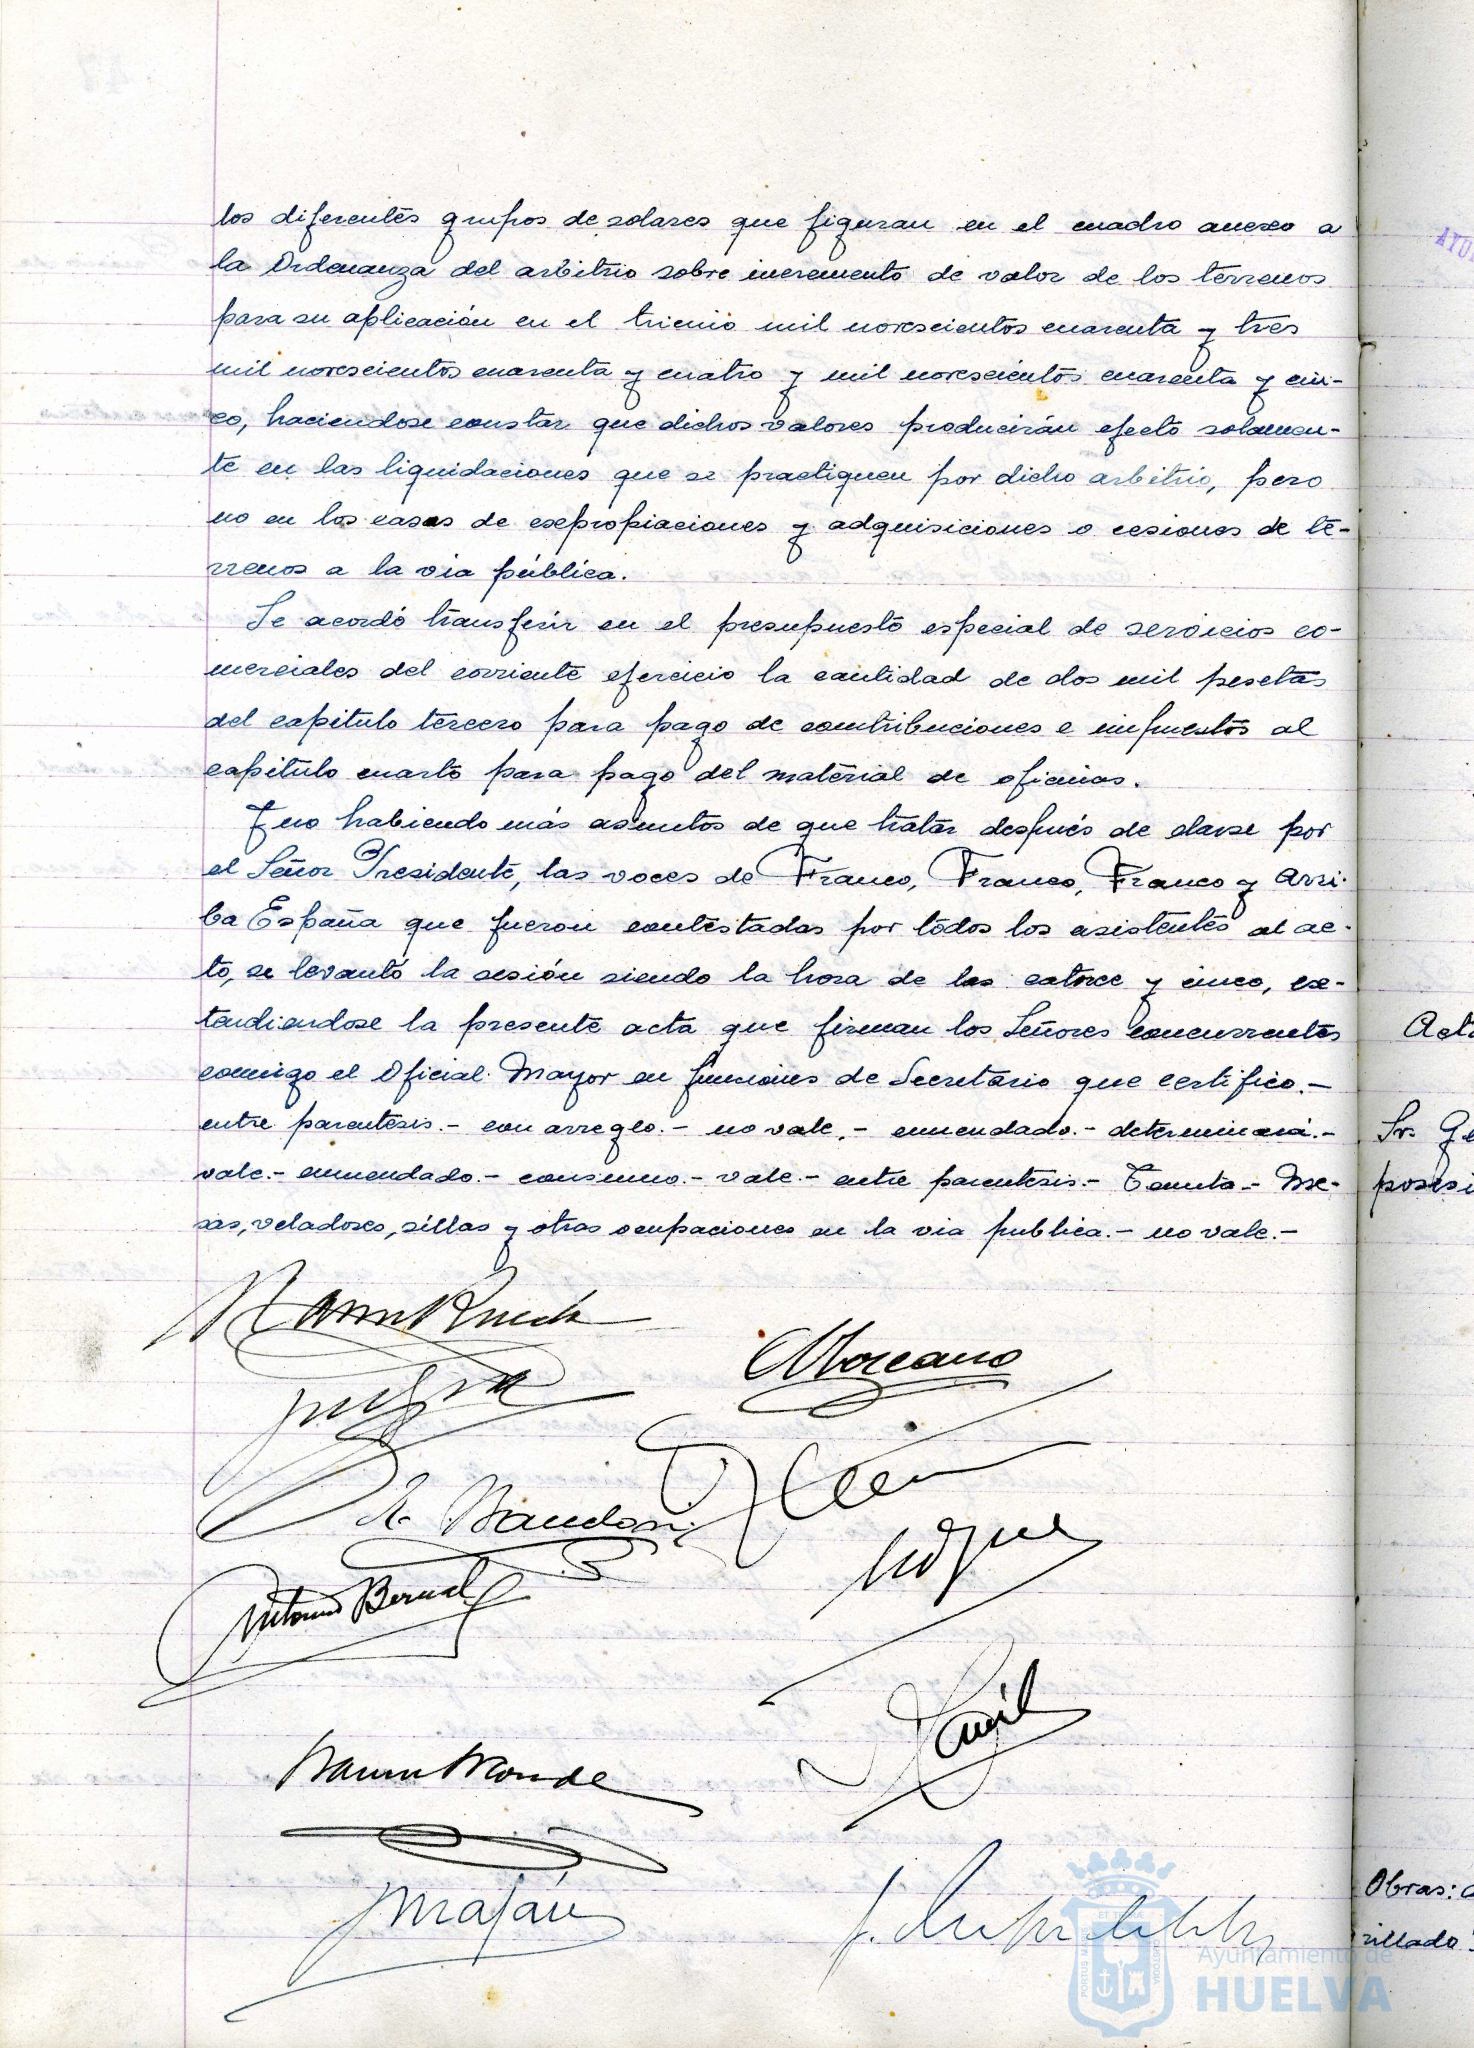 los diferentes grupos de solares que figuran en el cuadro anexo a
la Ordenanza del arbitrio sobre incremento de valor de los terrenos
para su aplicación en el trienio mil novescientos cuarenta y tres
mil novescientos cuarenta y cuatro y mil novescientos cuarenta y cin-
co, haciendose constar que dichos valores producirán efecto solamen-
te en las liquidaciones que se practiquen por dicho arbitrio, pero
no en los casos de expropiaciones y adquisiciones o cesiones de te-
rrenos a la via pública.
Se acordó transferir en el presupuesto especial de servicios co-
merciales del corriente ejercicio la cantidad de dos mil pesetas
del capitulo tercero para pago de contribuciones e impuestos al
capitulo cuarto para pago del material de oficinas.
Y no habiendo más asuntos de que tratar después de darse por
el Señor Presidente, las voces de Franco, Franco, Franco y Arri-
ba España que fueron contestadas por todos los asistentes al ac-
to, se levantó la sesión siendo la hora de las catorce y cinco, ex-
tendiendose la presente acta que firman los Señores concurrentes
conmigo el Oficial Mayor en funciones de Secretario que certifico.-
entre parentesis.- con arreglo.- no vale.- enmendado.- determinará.-
vale.- enmendado.- consumo.- vale.- entre parentesis.- Tenuta.- Me-
sas, veladores, sillas y otras ocupaciones en la via publica.- no vale.-
Moreano
Antonio Bernal
Maján
AYU
Acta
Sr. Ge
posesi
Obras:
rillado
Ayuntamiento de
HUELVA